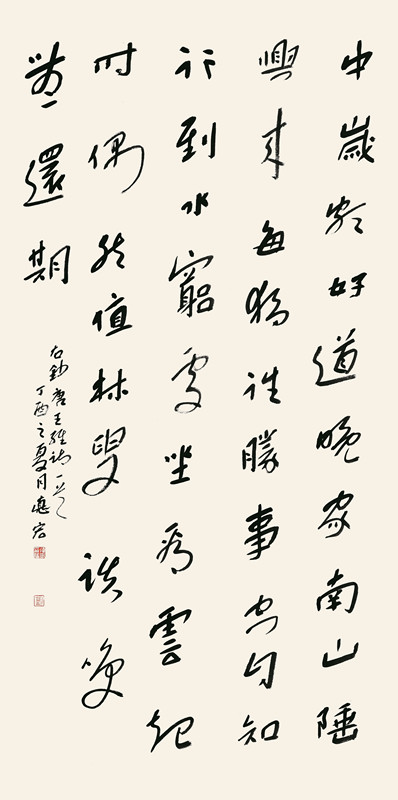 中歲頗好道晚家南山陲
興來每獨往勝事空自知
行到水窮處坐看雲起
時偶然值林叟談咲
無還期
右鈔唐王維詩一首
丁酉之夏月